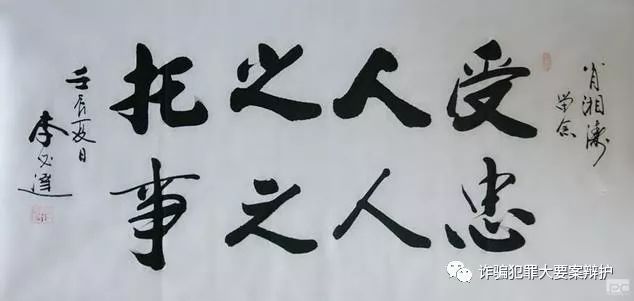 肖湘涛
学念
受人之托
忠人之事
壬辰夏日
李必达
诈骗犯罪大要案辩护